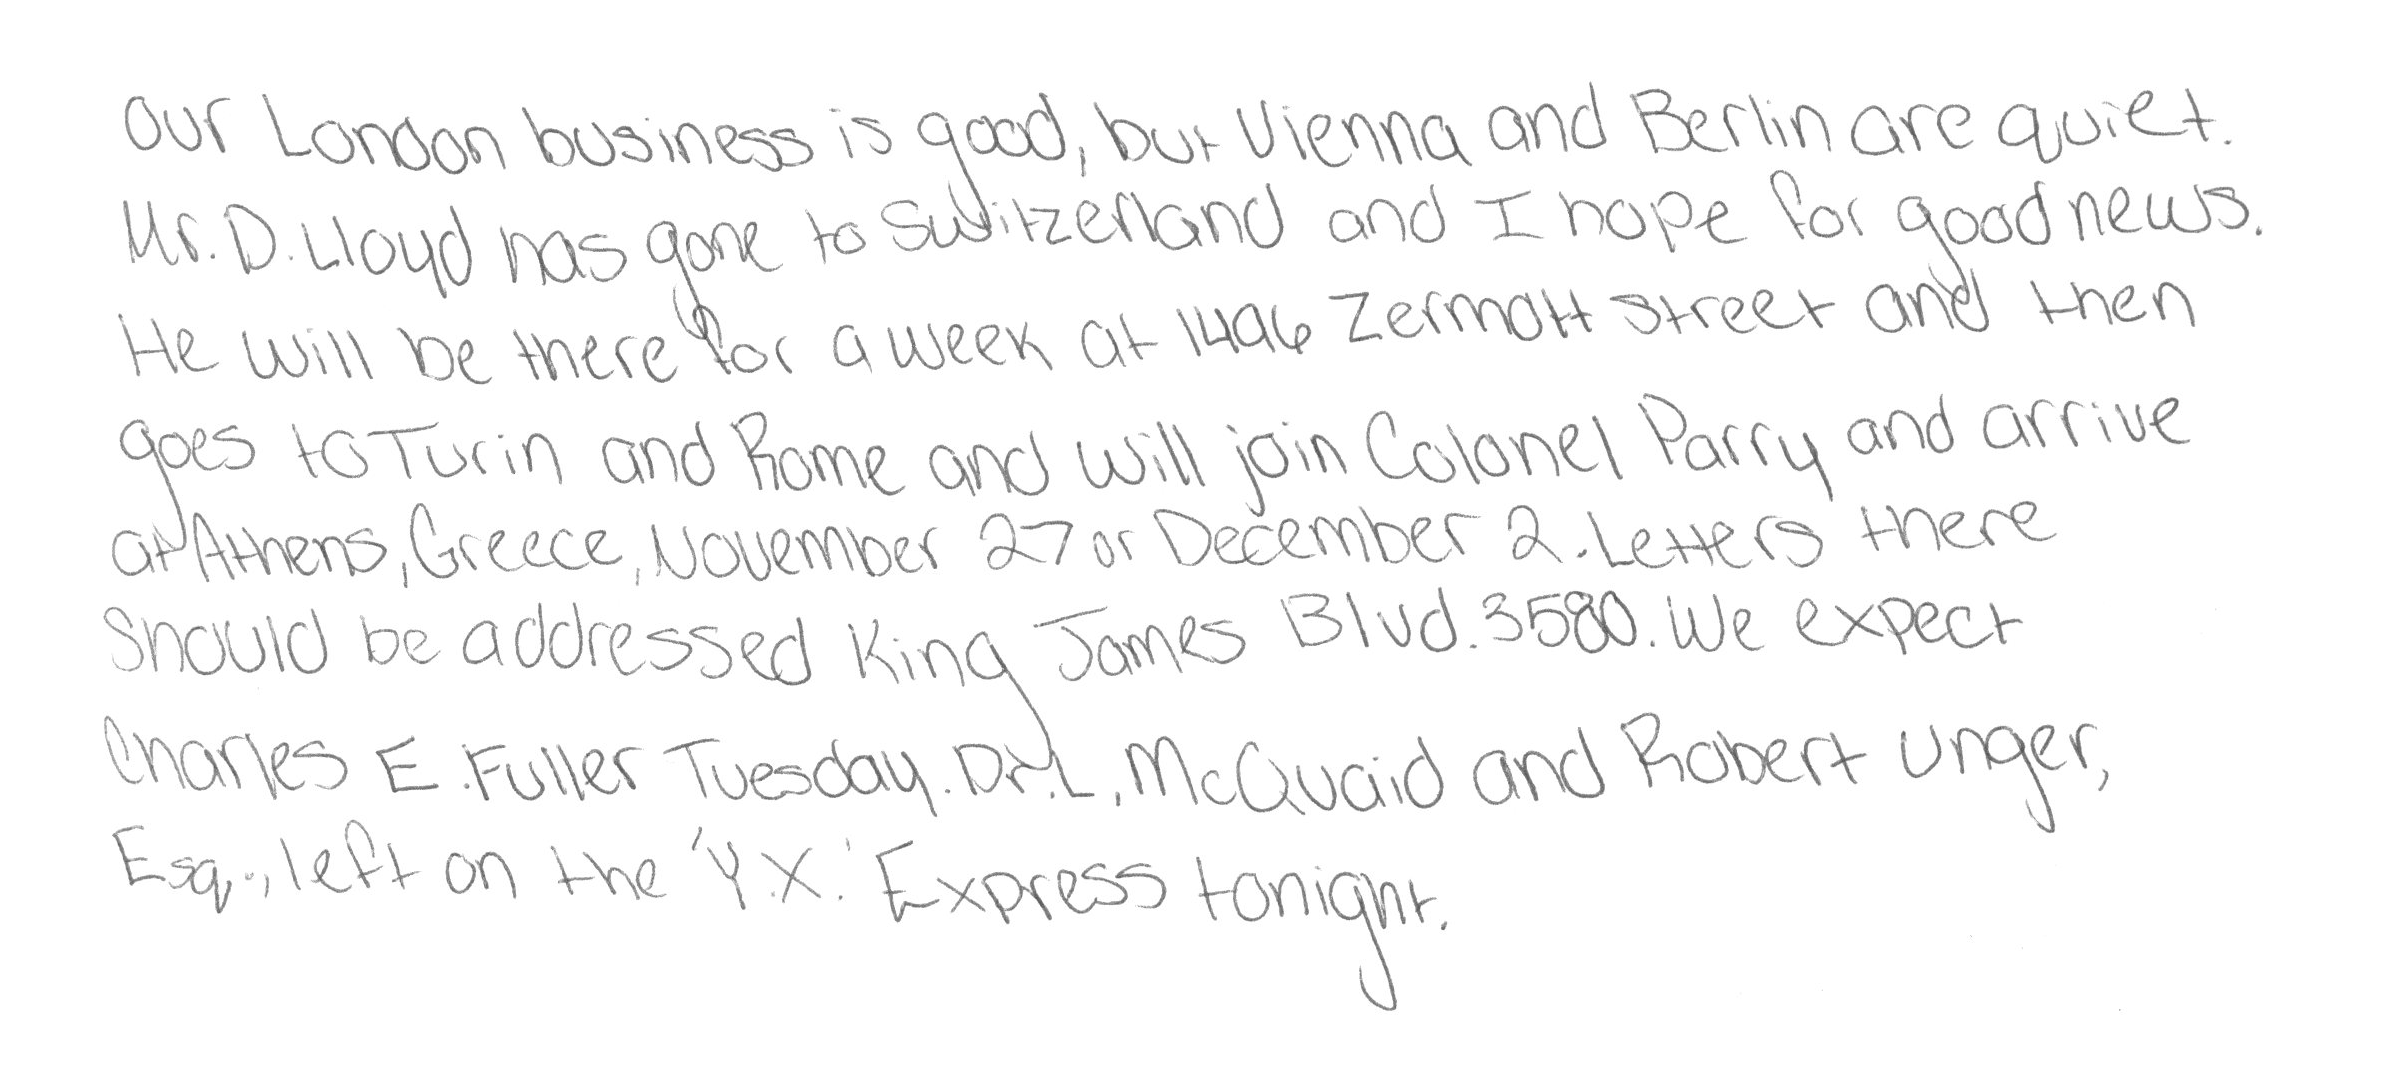 Our London business is good, but Vienna and Berlin are quiet.
Mr. D. Lloyd has gone to Switzerland and I hope for good news.
He will be there for a week at 1496 Zermott Street and then
goes to Turin and Rome and will join Colonel Parry and arrive
at Athens, Greece, November 27 or December 2. Letters there
Should be addressed King James Blvd. 3580. We expect
Charles E. Fuller Tuesday. Dr. L. McQuaid and Robert Unger,
Esq., left on the 'Y.X.' Express tonight.